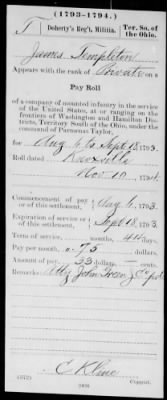 (1793-1794.)
T Doherty's Reg't, Militia. Ter. So. of the Ohio.
James Templeton
Appears with the rank of Private on a
Pay Roll
of a company of mounted infantry in the service
of the United States, at or ranging on the
frontiers of Washington and Hamilton Dis-
tricts, Territory South of the Ohio, under the
command of Parmenas Taylor,
for Aug 6 to Sept 18, 1793.
Roll dated Knoxville
Nov 10, 179
Commencement of pay or of this settlement, Aug 6, 1793.
Expiration of service or of this settlement, Sept 18, 1793
Term of service, months, 44 days.
Pay per month, 75
Amount of pay, 33 dollars, cents.
Remarks: Atty John
C Kline
(572) Copyist.